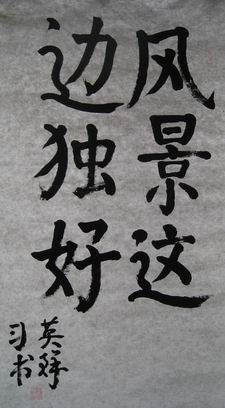 风景这
边独好
英强
习书